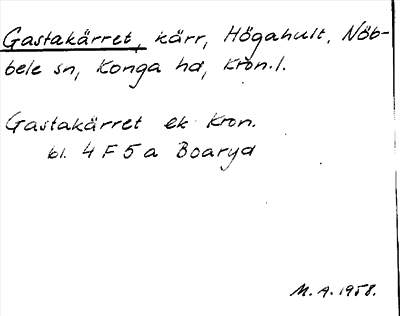 Gastakärret, kärr, Högahult, Nöb-
bele sn, Konga hd, Kron.l.
Gastakärret ek Kron.
bl. 4 F 5 a Boaryd
M. A. 1958.